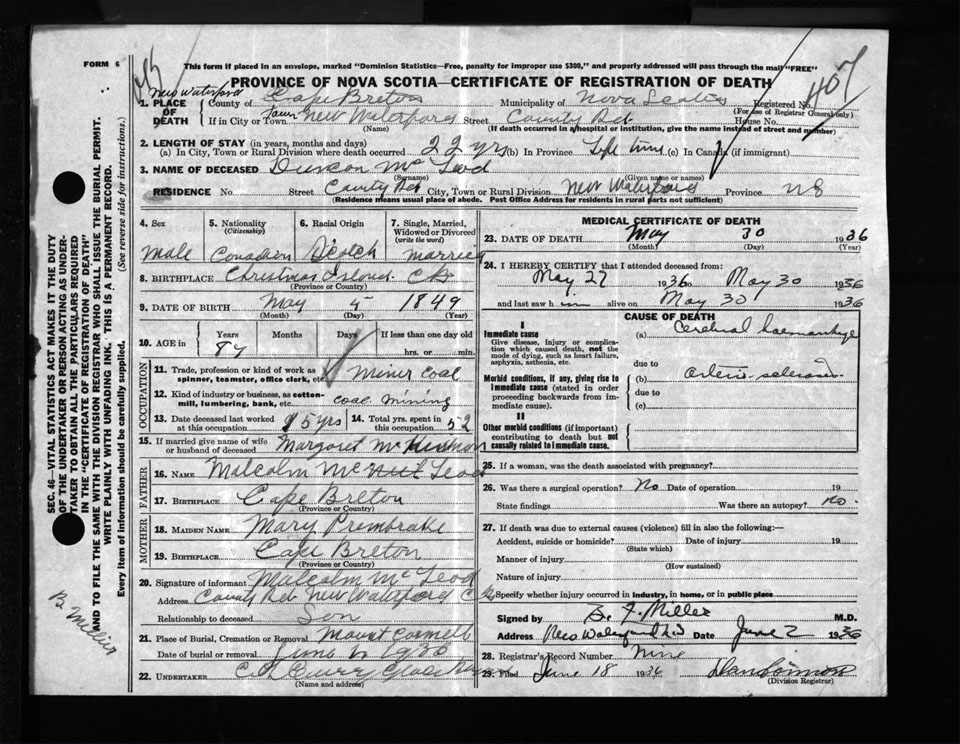 FORM 6
This form if placed in an envelope, marked "Dominion Statistics—Free, penalty for improper use $300," and properly addressed will pass through the mail "FREE"
PROVINCE OF NOVA SCOTIA—CERTIFICATE OF REGISTRATION OF DEATH
407
New Waterford
1. PLACE OF DEATH
County of Cape Breton Municipality of Nova Scotia Registered No.
(For use of Registrar General only)
If in City or Town Town New Waterford Street County Rd House No.
(Name) (If death occurred in a hospital or institution, give the name instead of street and number)
2. LENGTH OF STAY (in years, months and days)
(a) In City, Town or Rural Division where death occurred 22 yrs (b) In Province Life time (c) In Canada (if immigrant)
3. NAME OF DECEASED Duncan Mc Leod
(Surname) (Given name or names)
RESIDENCE No. Street County Rd City, Town or Rural Division New Waterford Province NS
(Residence means usual place of abode. Post Office Address for residents in rural parts not sufficient)
4. Sex Male
5. Nationality (Citizenship) Canadian
6. Racial Origin Scotch
7. Single, Married, Widowed or Divorced (write the word) married
8. BIRTHPLACE Christmas Island C.B.
(Province or Country)
9. DATE OF BIRTH May 5 1849
(Month) (Day) (Year)
10. AGE in Years 87 Months Days If less than one day old hrs. or min.
OCCUPATION
11. Trade, profession or kind of work as spinner, teamster, office clerk, etc. Miner Coal
12. Kind of industry or business, as cotton-mill, lumbering, bank, etc. Coal Mining
13. Date deceased last worked at this occupation 15 yrs
14. Total yrs. spent in this occupation 52
15. If married give name of wife or husband of deceased Margaret
FATHER
16. NAME Malcolm Mc Leod
17. BIRTHPLACE Cape Breton
(Province or Country)
MOTHER
18. MAIDEN NAME Mary Prembrake
19. BIRTHPLACE Cape Breton
(Province or Country)
20. Signature of informant Malcolm Mc Leod
Address County Rd New Waterford C B
Relationship to deceased Son
21. Place of Burial, Cremation or Removal Mount Carmell
Date of burial or removal June 1 1936
22. UNDERTAKER Curry Glace Bay
(Name and address)
MEDICAL CERTIFICATE OF DEATH
23. DATE OF DEATH May 30 1936
(Month) (Day) (Year)
24. I HEREBY CERTIFY that I attended deceased from:
May 27 1936 to May 30 1936
and last saw h im alive on May 30 1936
CAUSE OF DEATH
I
Immediate cause
Give disease, injury or complication which caused death, not the mode of dying, such as heart failure, asphyxia, asthenia, etc.
(a) Cerebral haemorrhage
due to
Morbid conditions, if any, giving rise to immediate cause (stated in order proceeding backwards from immediate cause).
(b) Arterio-sclerosis
due to
(c)
II
Other morbid conditions (if important) contributing to death but not causally related to immediate cause.
25. If a woman, was the death associated with pregnancy?
26. Was there a surgical operation? No Date of operation 19
State findings Was there an autopsy? no
27. If death was due to external causes (violence) fill in also the following:—
Accident, suicide or homicide? Date of injury 19
(State which)
Manner of injury
(How sustained)
Nature of injury
Specify whether injury occurred in industry, in home, or in public place
Signed by B. J. Miller M.D.
Address New Waterford N.S. Date June 2 1936
28. Registrar's Record Number Nine
29. Filed June 18 1936
(Division Registrar)
SEC. 46—VITAL STATISTICS ACT MAKES IT THE DUTY
OF THE UNDERTAKER OR PERSON ACTING AS UNDER-
TAKER TO OBTAIN ALL THE PARTICULARS REQUIRED
IN THE "CERTIFICATE OF REGISTRATION OF DEATH"
AND TO FILE THE SAME WITH THE DIVISION REGISTRAR WHO SHALL ISSUE THE BURIAL PERMIT.
WRITE PLAINLY WITH UNFADING INK. THIS IS A PERMANENT RECORD.
Every item of information should be carefully supplied. (See reverse side for instructions.)